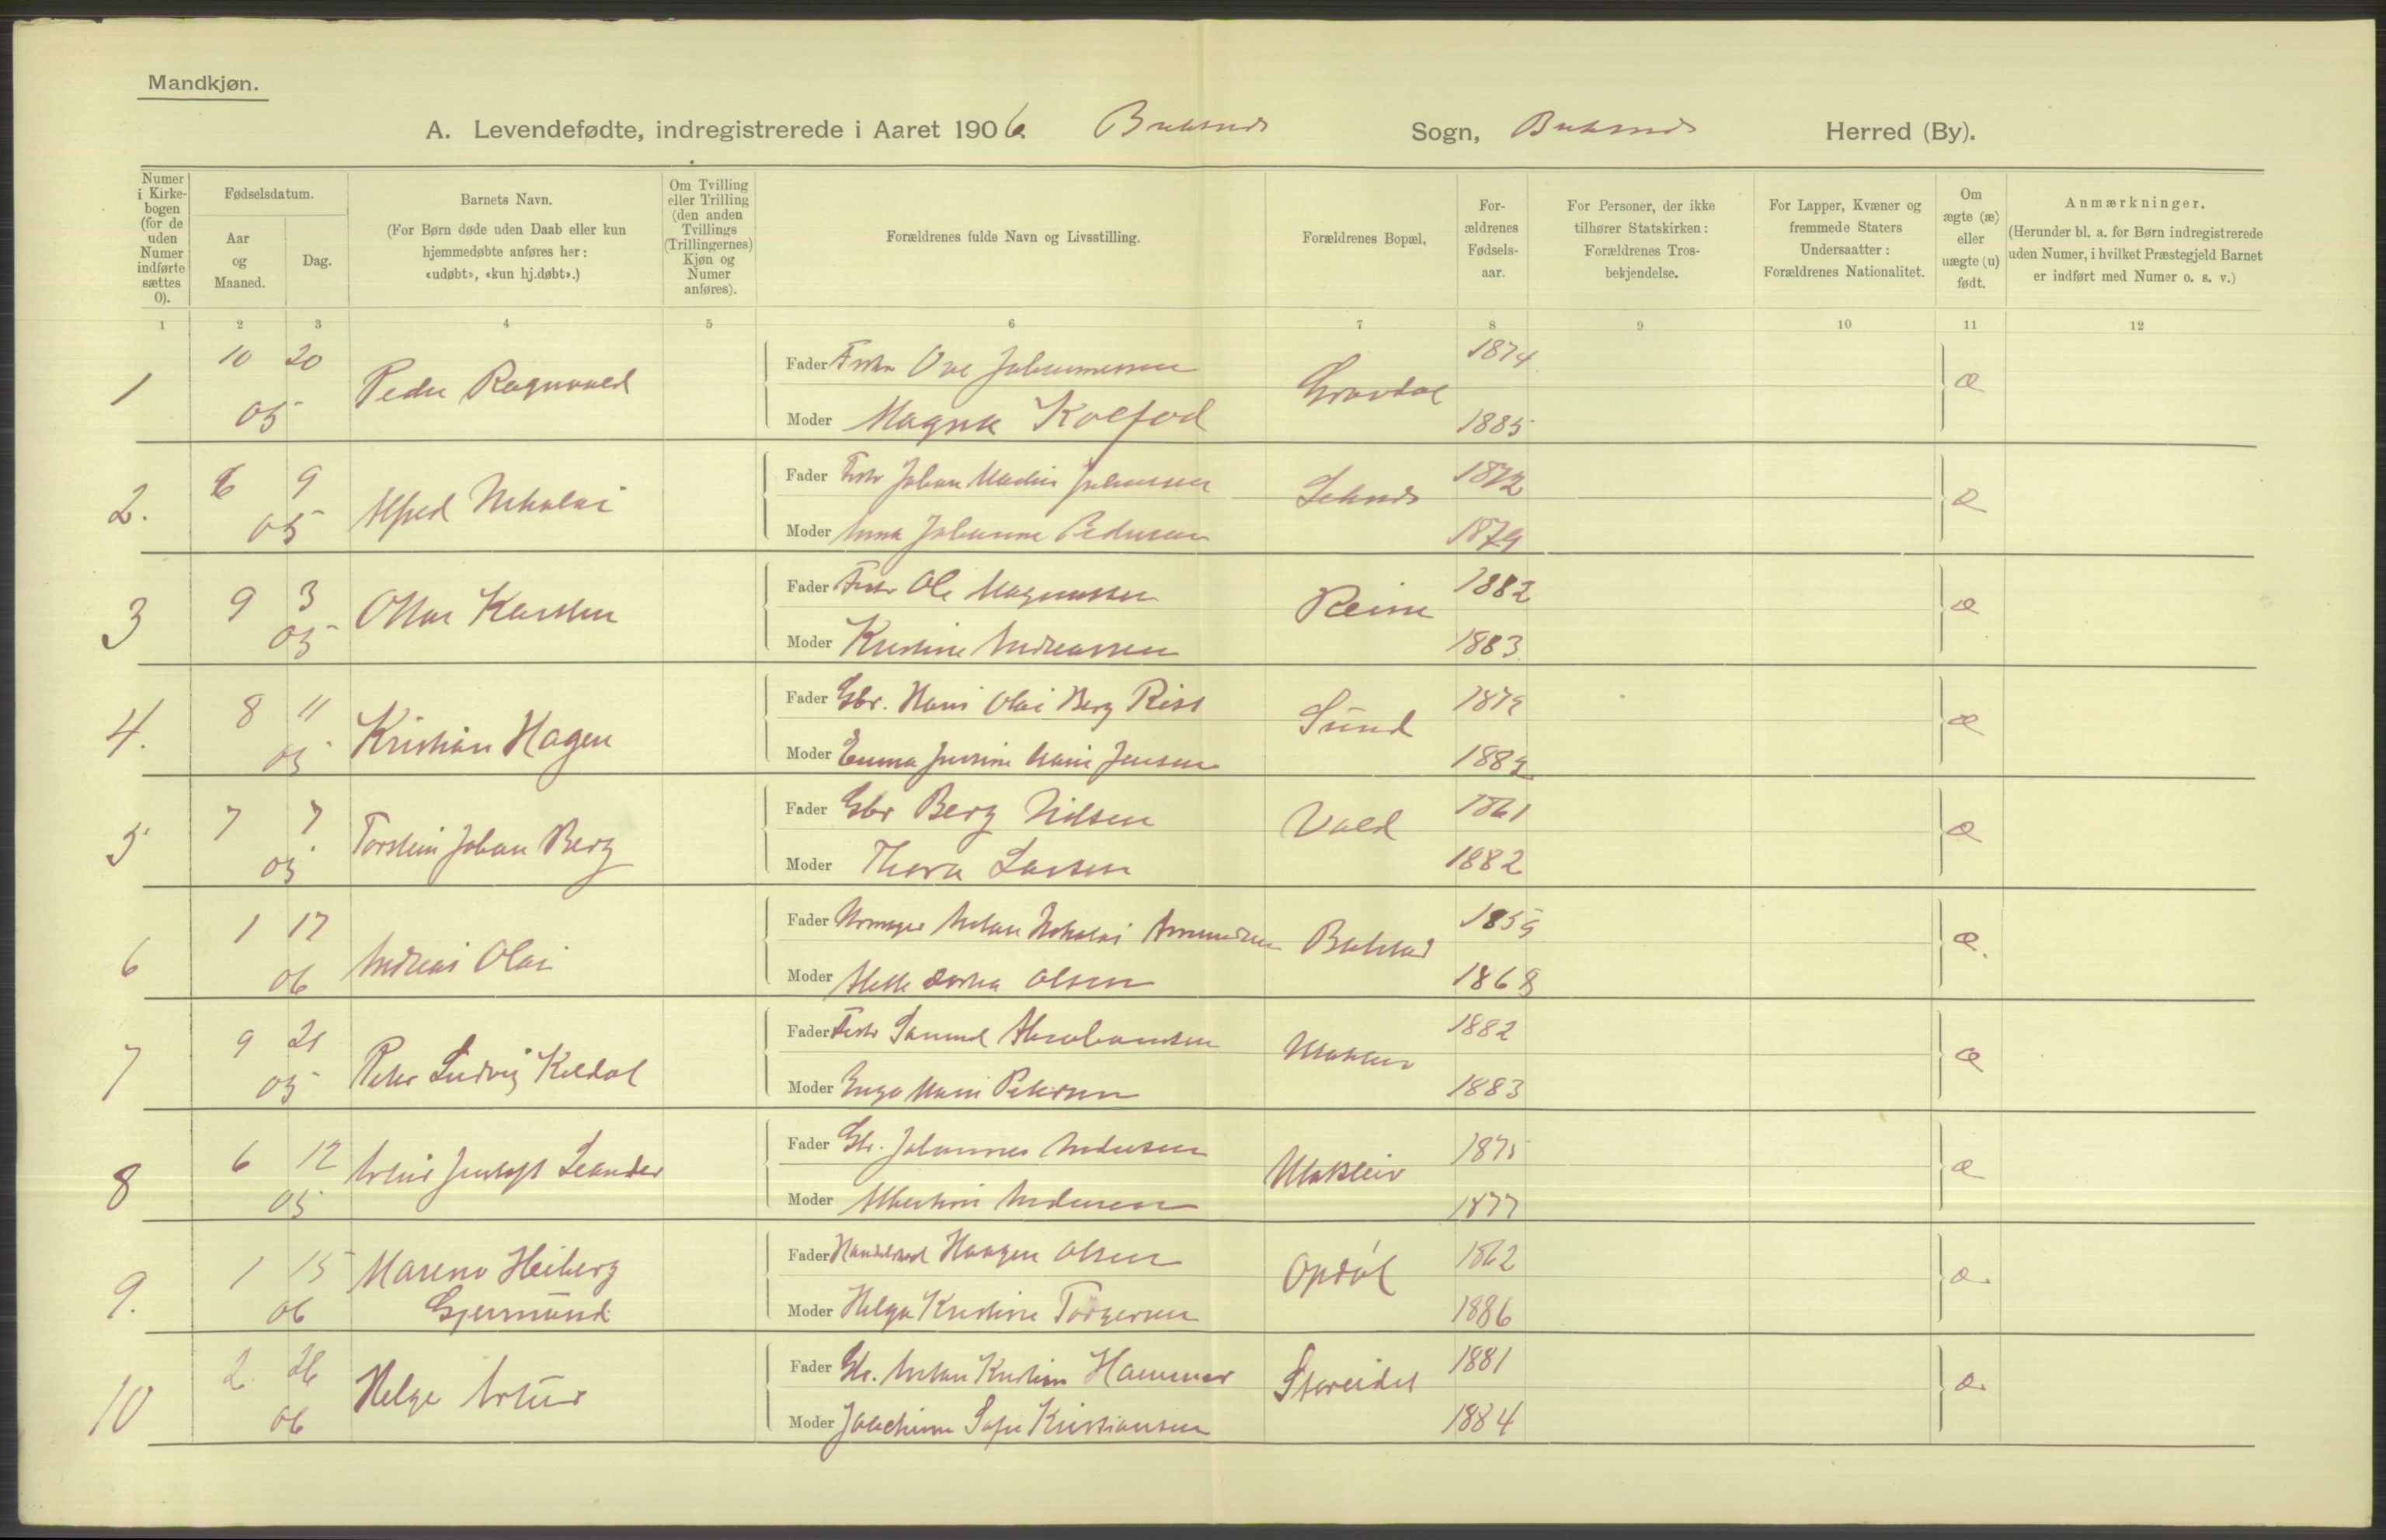 Mandkjøn.
A. Levendefødte, indregistrerede i Aaret 1906. Buksnes Sogn, Buksnes Herred (By).
Numer i Kirkebogen (for de uden Numer indførte sættes 0).
Fødselsdatum.
Aar og Maaned.
Dag.
Barnets Navn.
(For Børn døde uden Daab eller kun hjemmedøbte anføres her: «udøbt», «kun hj.døbt».)
Om Tvilling eller Trilling (den anden Tvillings (Trillingernes) Kjøn og Numer anføres).
Forældrenes fulde Navn og Livsstilling.
Forældrenes Bopæl,
Forældrenes Fødselsaar.
For Personer, der ikke tilhører Statskirken: Forældrenes Trosbekjendelse.
For Lapper, Kvæner og fremmede Staters Undersaatter: Forældrenes Nationalitet.
Om ægte (æ) eller uægte (u) født.
Anmærkninger.
(Herunder bl. a. for Børn indregistrerede uden Numer, i hvilket Præstegjeld Barnet er indført med Numer o. s. v.)
1 2 3 4 5 6 7 8 9 10 11 12
1 10 20 05 Peder Ragnvald
Fader Ove Johannessen Gravdal 1874 æ
Moder Magna Kolfod 1885
2. 6 9 05 Alfred Nikolai
Fader Johan Johansen Leknes 1872 æ
Moder Anna Johanne Pedersen 1879
3 9 3 05 Ottar Karsten
Fader Ole Magnussen Reine 1882 æ
Moder Kristine Andreassen 1883
4. 8 11 05 Kristian Hagen
Fader Gbr. Hans Olai Berg Rist Sund 1879 æ
Moder Emma Marie Jensen
5 7 7 05 Torstein Johan Berg
Fader Gbr Berg Nilsen Vold 1861 æ
Moder Thora Larsen 1882
6 1 17 06 Andreas Olai
Fader Anton Nikolai Amundsen Balstad 1859 æ
Moder Dorthea Olsen 1868
7 9 21 05 Peter Ludvig Keldal
Fader Samuel Abrahamsen 1882 æ
Moder Marie Petersen 1883
8 6 12 05 Leander
Fader Johannes Andersen Ulakleiv 1875 æ
Moder Albertine Andersen 1877
9. 1 15 06 Mareno Heiberg
Gjermund
Fader Haagen Olsen Opdøl 1862 æ
Moder Helga Kristine Torgersen 1886
10 2 26 06 Helge Artur
Fader Anton Kristian Hammer Storeidet 1881 æ
Moder Joachime Sofie Kristiansen 1884